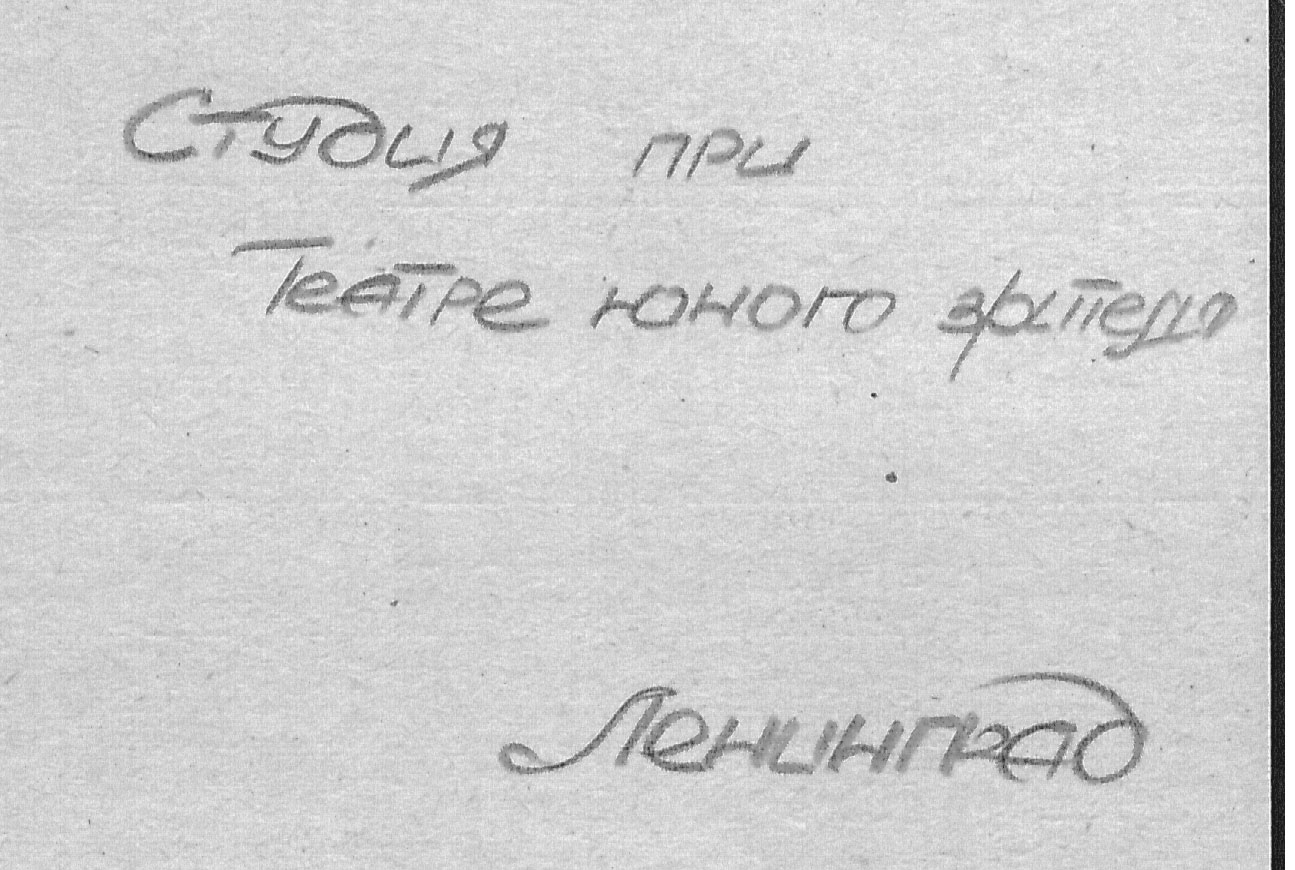 Студия при
Театре юного зрителя
Ленинград